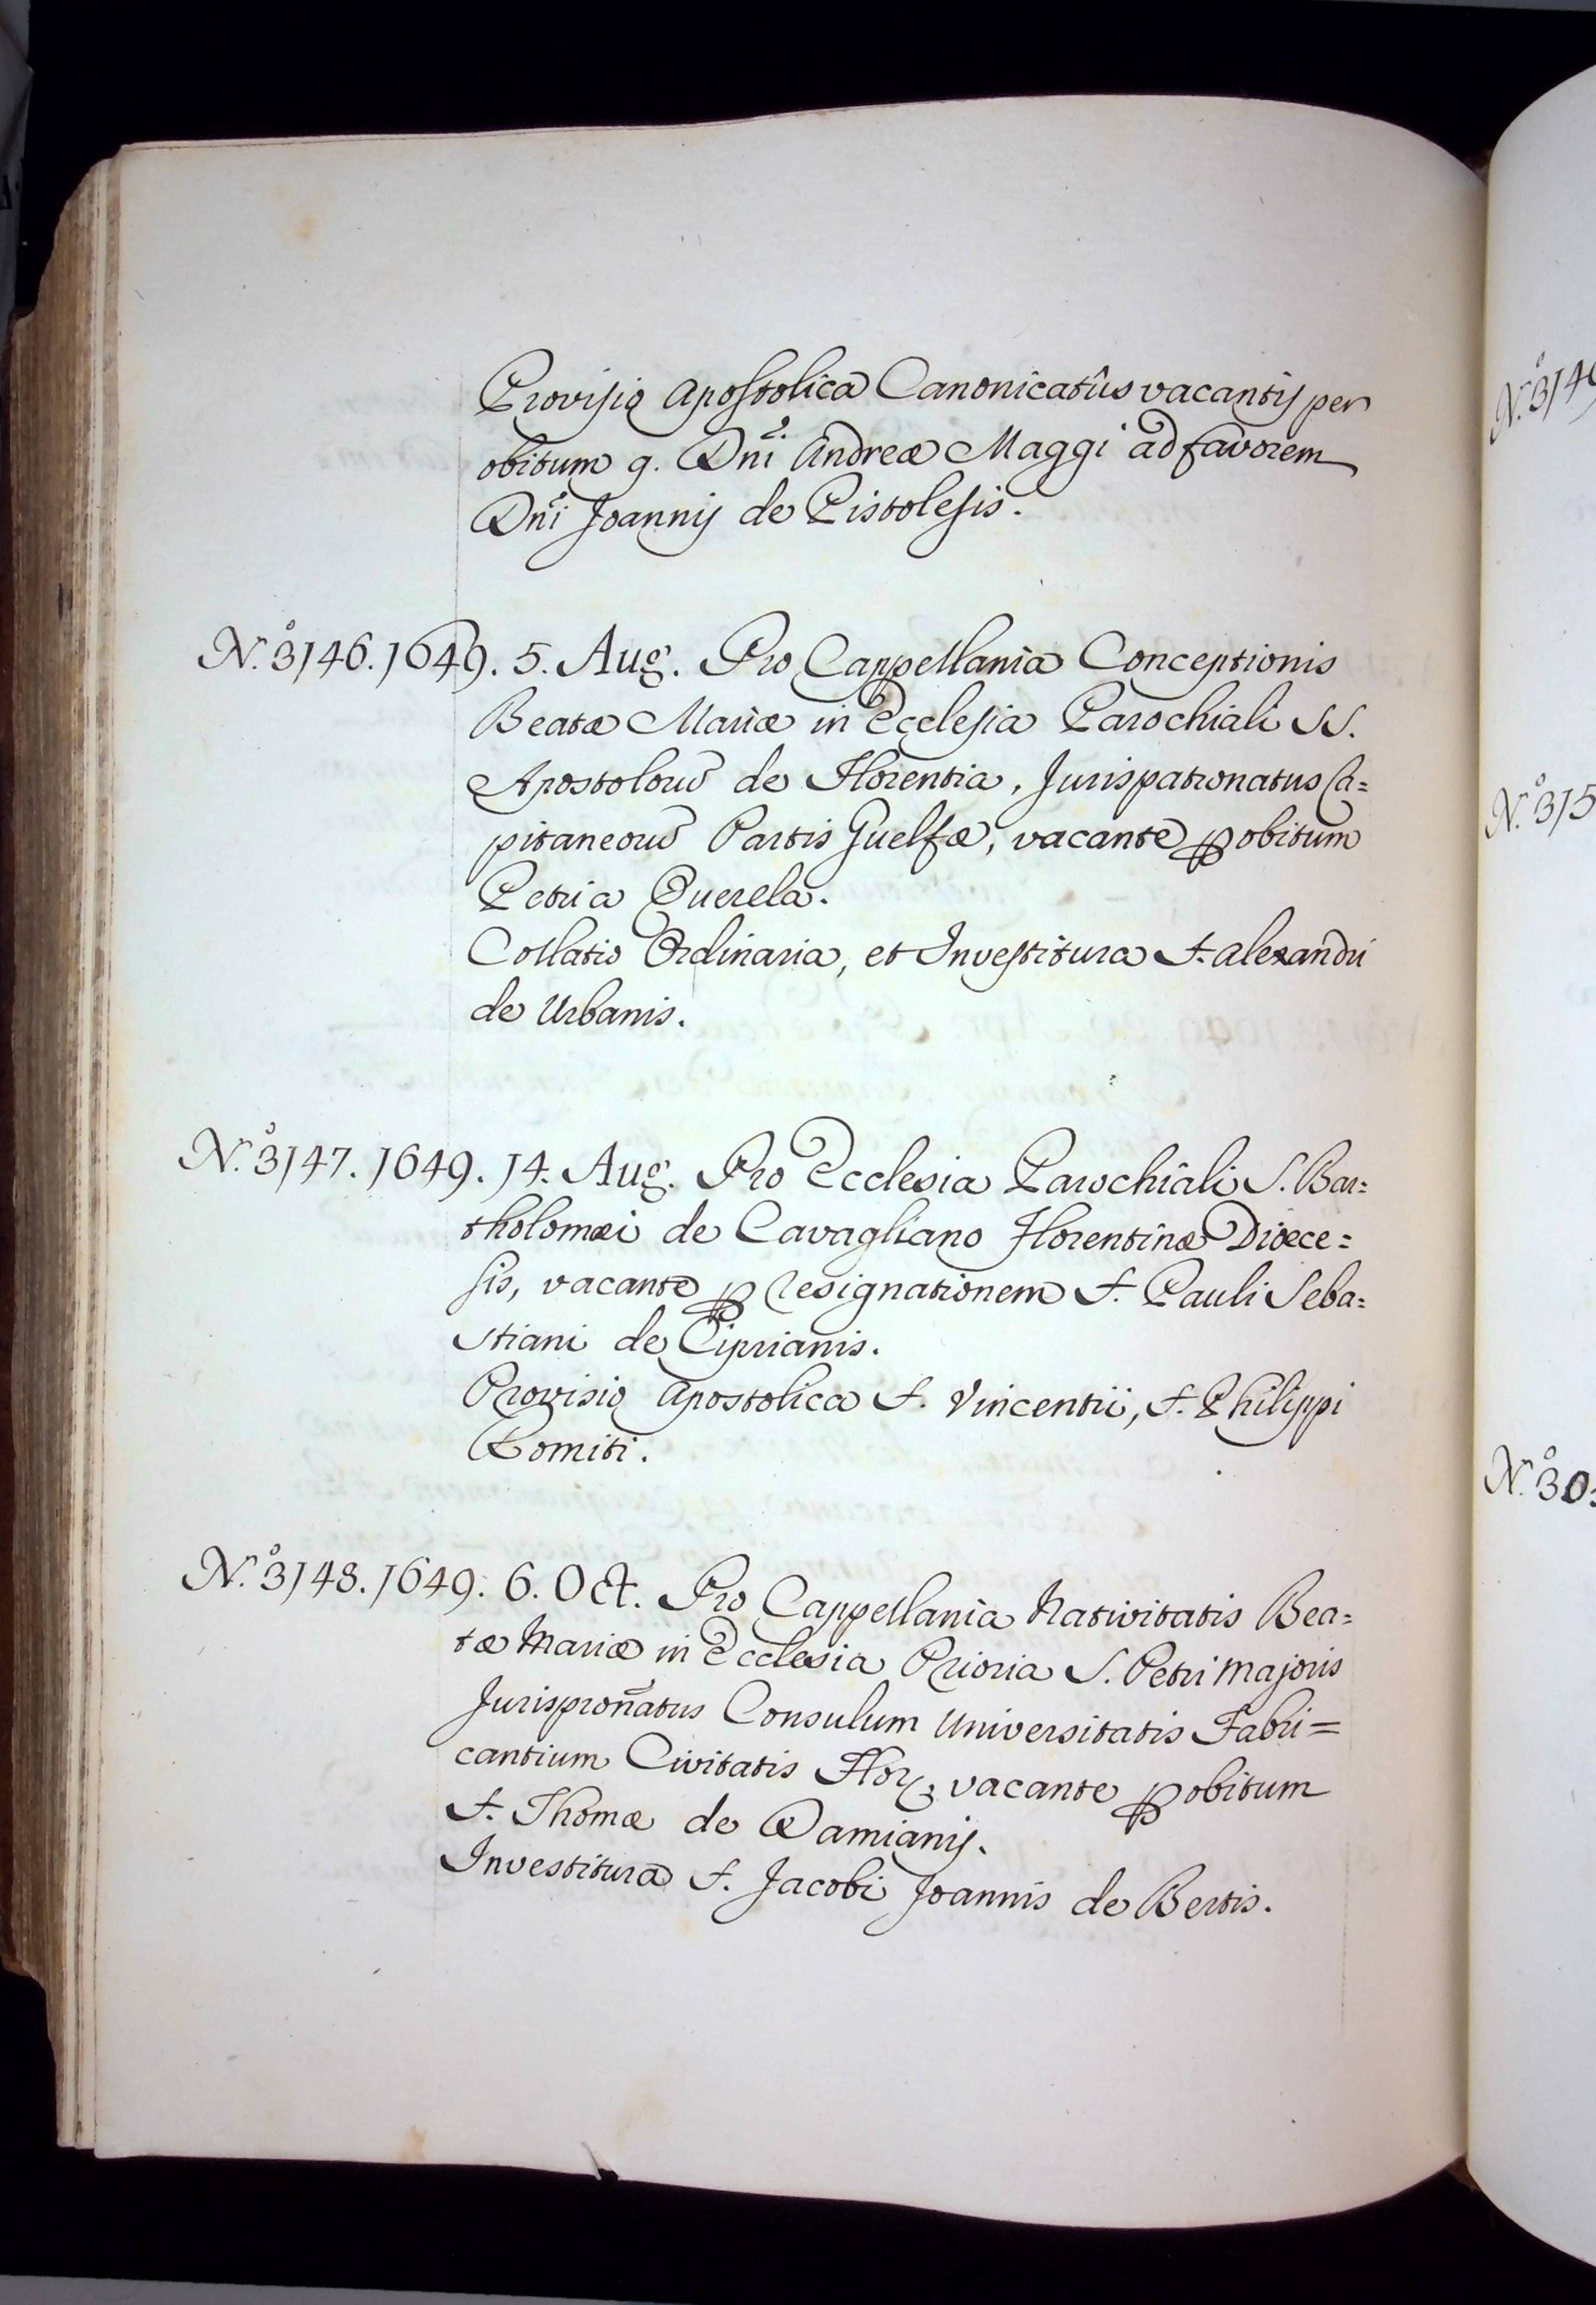 Provisio Apostolica Canonicatûs vacantis per
obitum q. Dñi Andreæ Maggi ad favorem
Dñi Joannis de Pistolesis.
N.º 3146. 1649. 5. Aug. Pro Cappellania Conceptionis
Beatæ Mariæ in Ecclesia Parochiali SS.
Apostolorũ de Florentia, Jurispatronatus Ca=
pitaneorũ Partis Guelfæ, vacante ꝑ obitum
Petri a Querela.
Collatio Ordinaria, et Investitura F. Alexandri
de Urbanis.
N.º 3147. 1649. 14. Aug. Pro Ecclesia Parochiali S. Bar=
tholomæi de Cavagliano Florentinæ Diœce=
sis, vacante ꝑ resignationem F. Pauli Seba=
stiani de Ciprianis.
Provisio Apostolica F. Vincentii, F. Philippi
Comiti.
N.º 3148. 1649. 6. Oct. Pro Cappellania Nativitatis Bea=
tæ Mariæ in Ecclesia Prioria S. Petri Majoris
Jurisproñatus Consulum Universitatis Fabri=
cantium Civitatis Flor., vacante ꝑ obitum
F. Thomæ de Damianis.
Investitura F. Jacobi Joannis de Bertis.
N.º 314
N.º 315
N.º 30